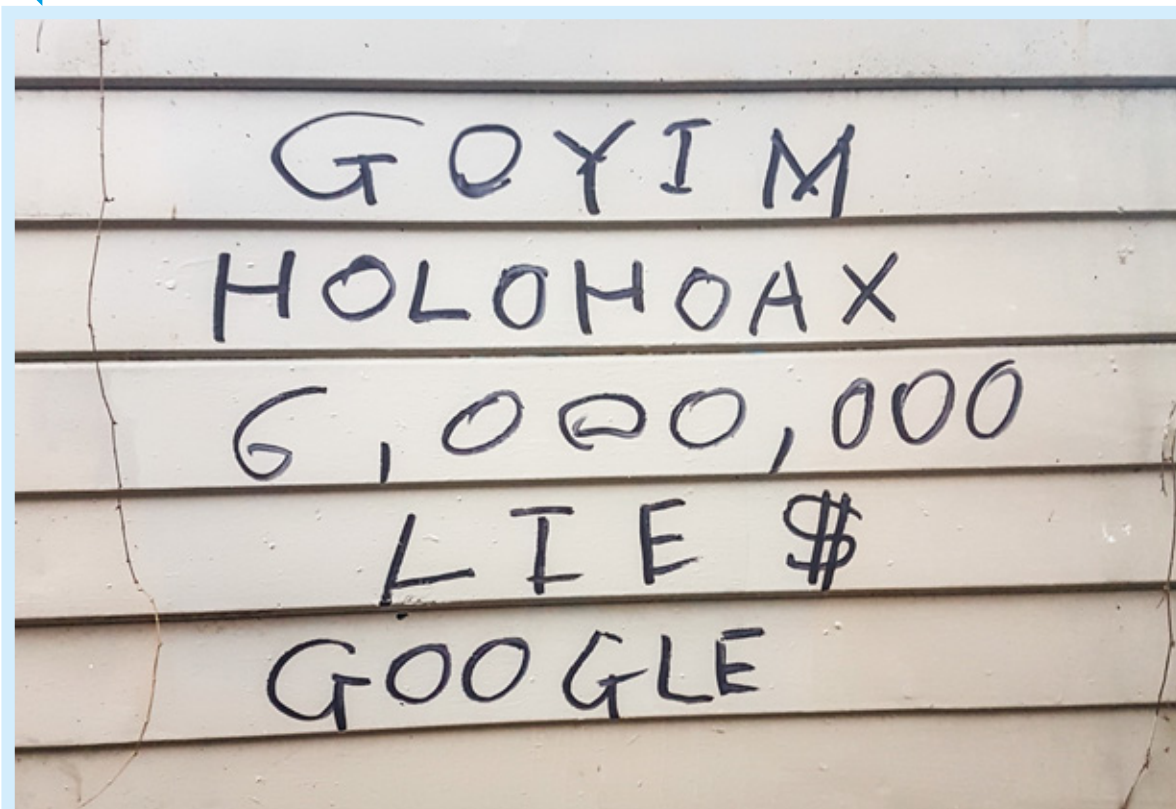 GOYIM
HOLOHOAX
6,000,000
LIE$
GOOGLE